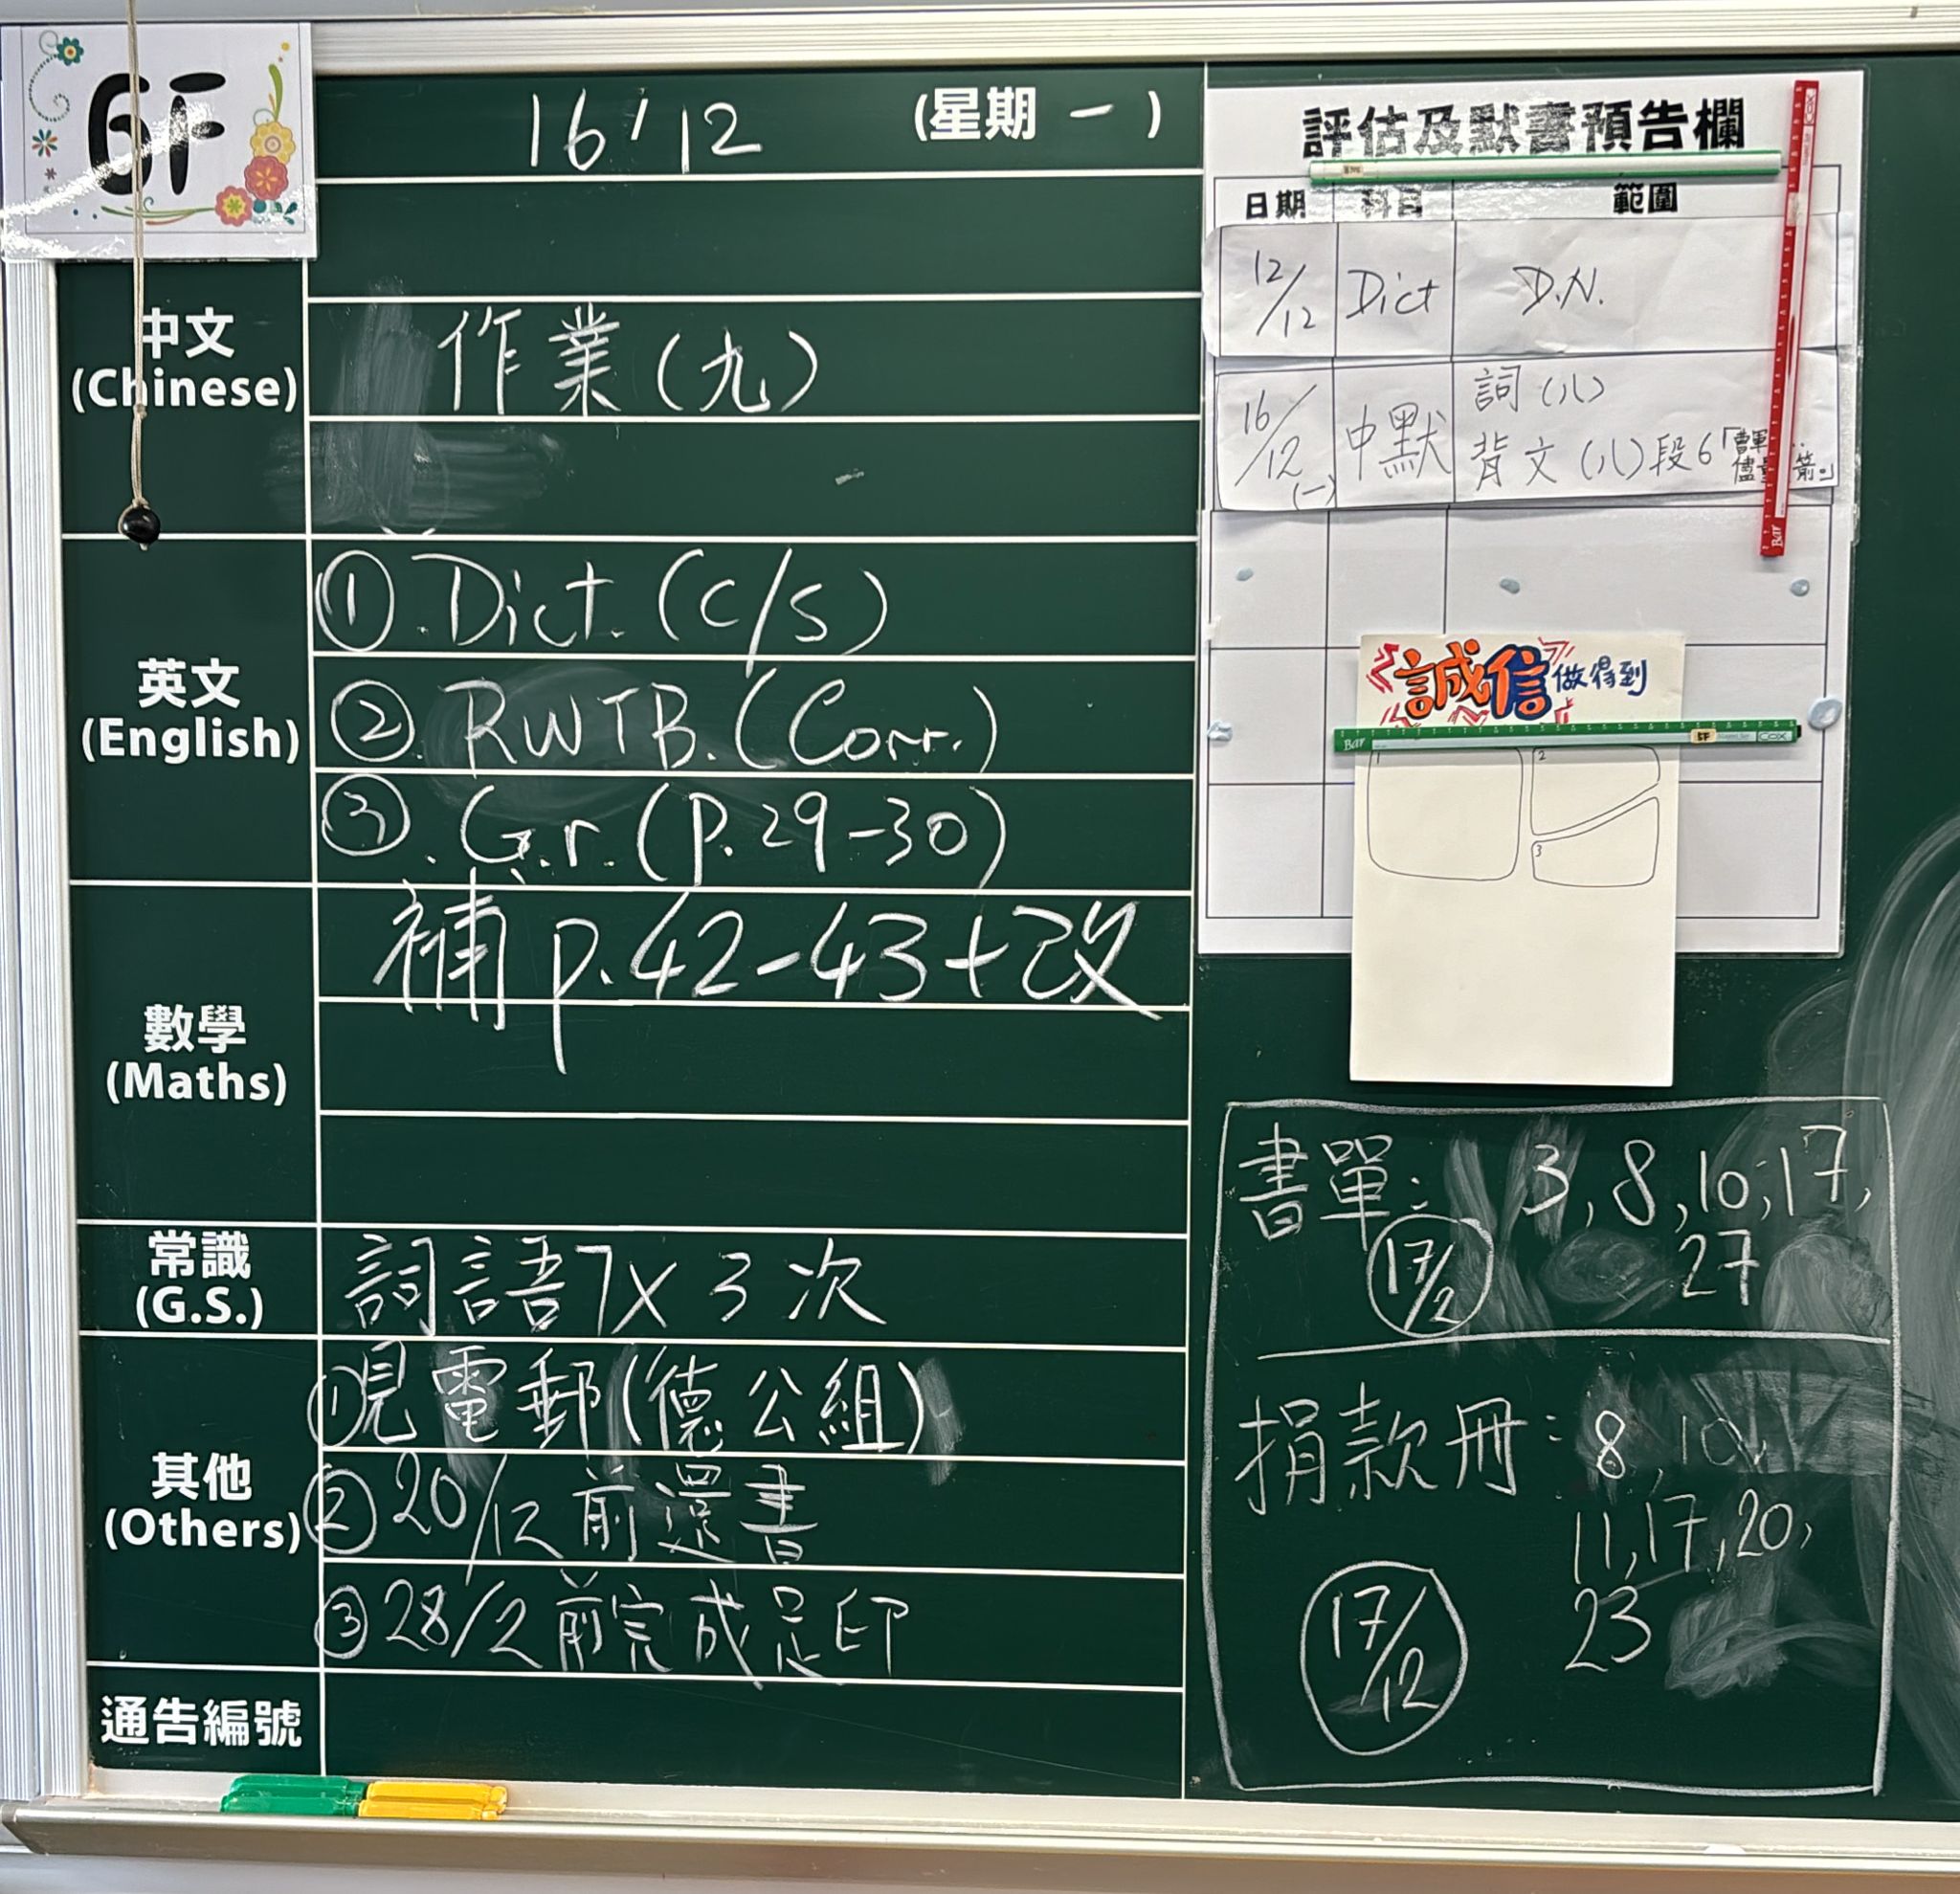 6F
16/12 (星期一)
中文
(Chinese)
作業(九)
英文
(English)
①.Dict.(c/s)
②.RWTB.(Corr.)
③.Gr.(p.29-30)
數學
(Maths)
補 p.42-43+改
常識
(G.S.)
詞語7x3次
其他
(Others)
①見電郵(德公組)
②20/12前還書
③28/2前完成足印
通告編號
評估及默書預告欄
日期 科目 範圍
12/12 Dict D.N.
16/12(一) 中默 詞(八)
背文(八)段6「曹軍…
箭。」
誠信做得到
Bar COX
1 2
3
Bar
書單: 3,8,10,17,
17/2 27
捐款冊: 8,10,
11,17,20,
17/12 23